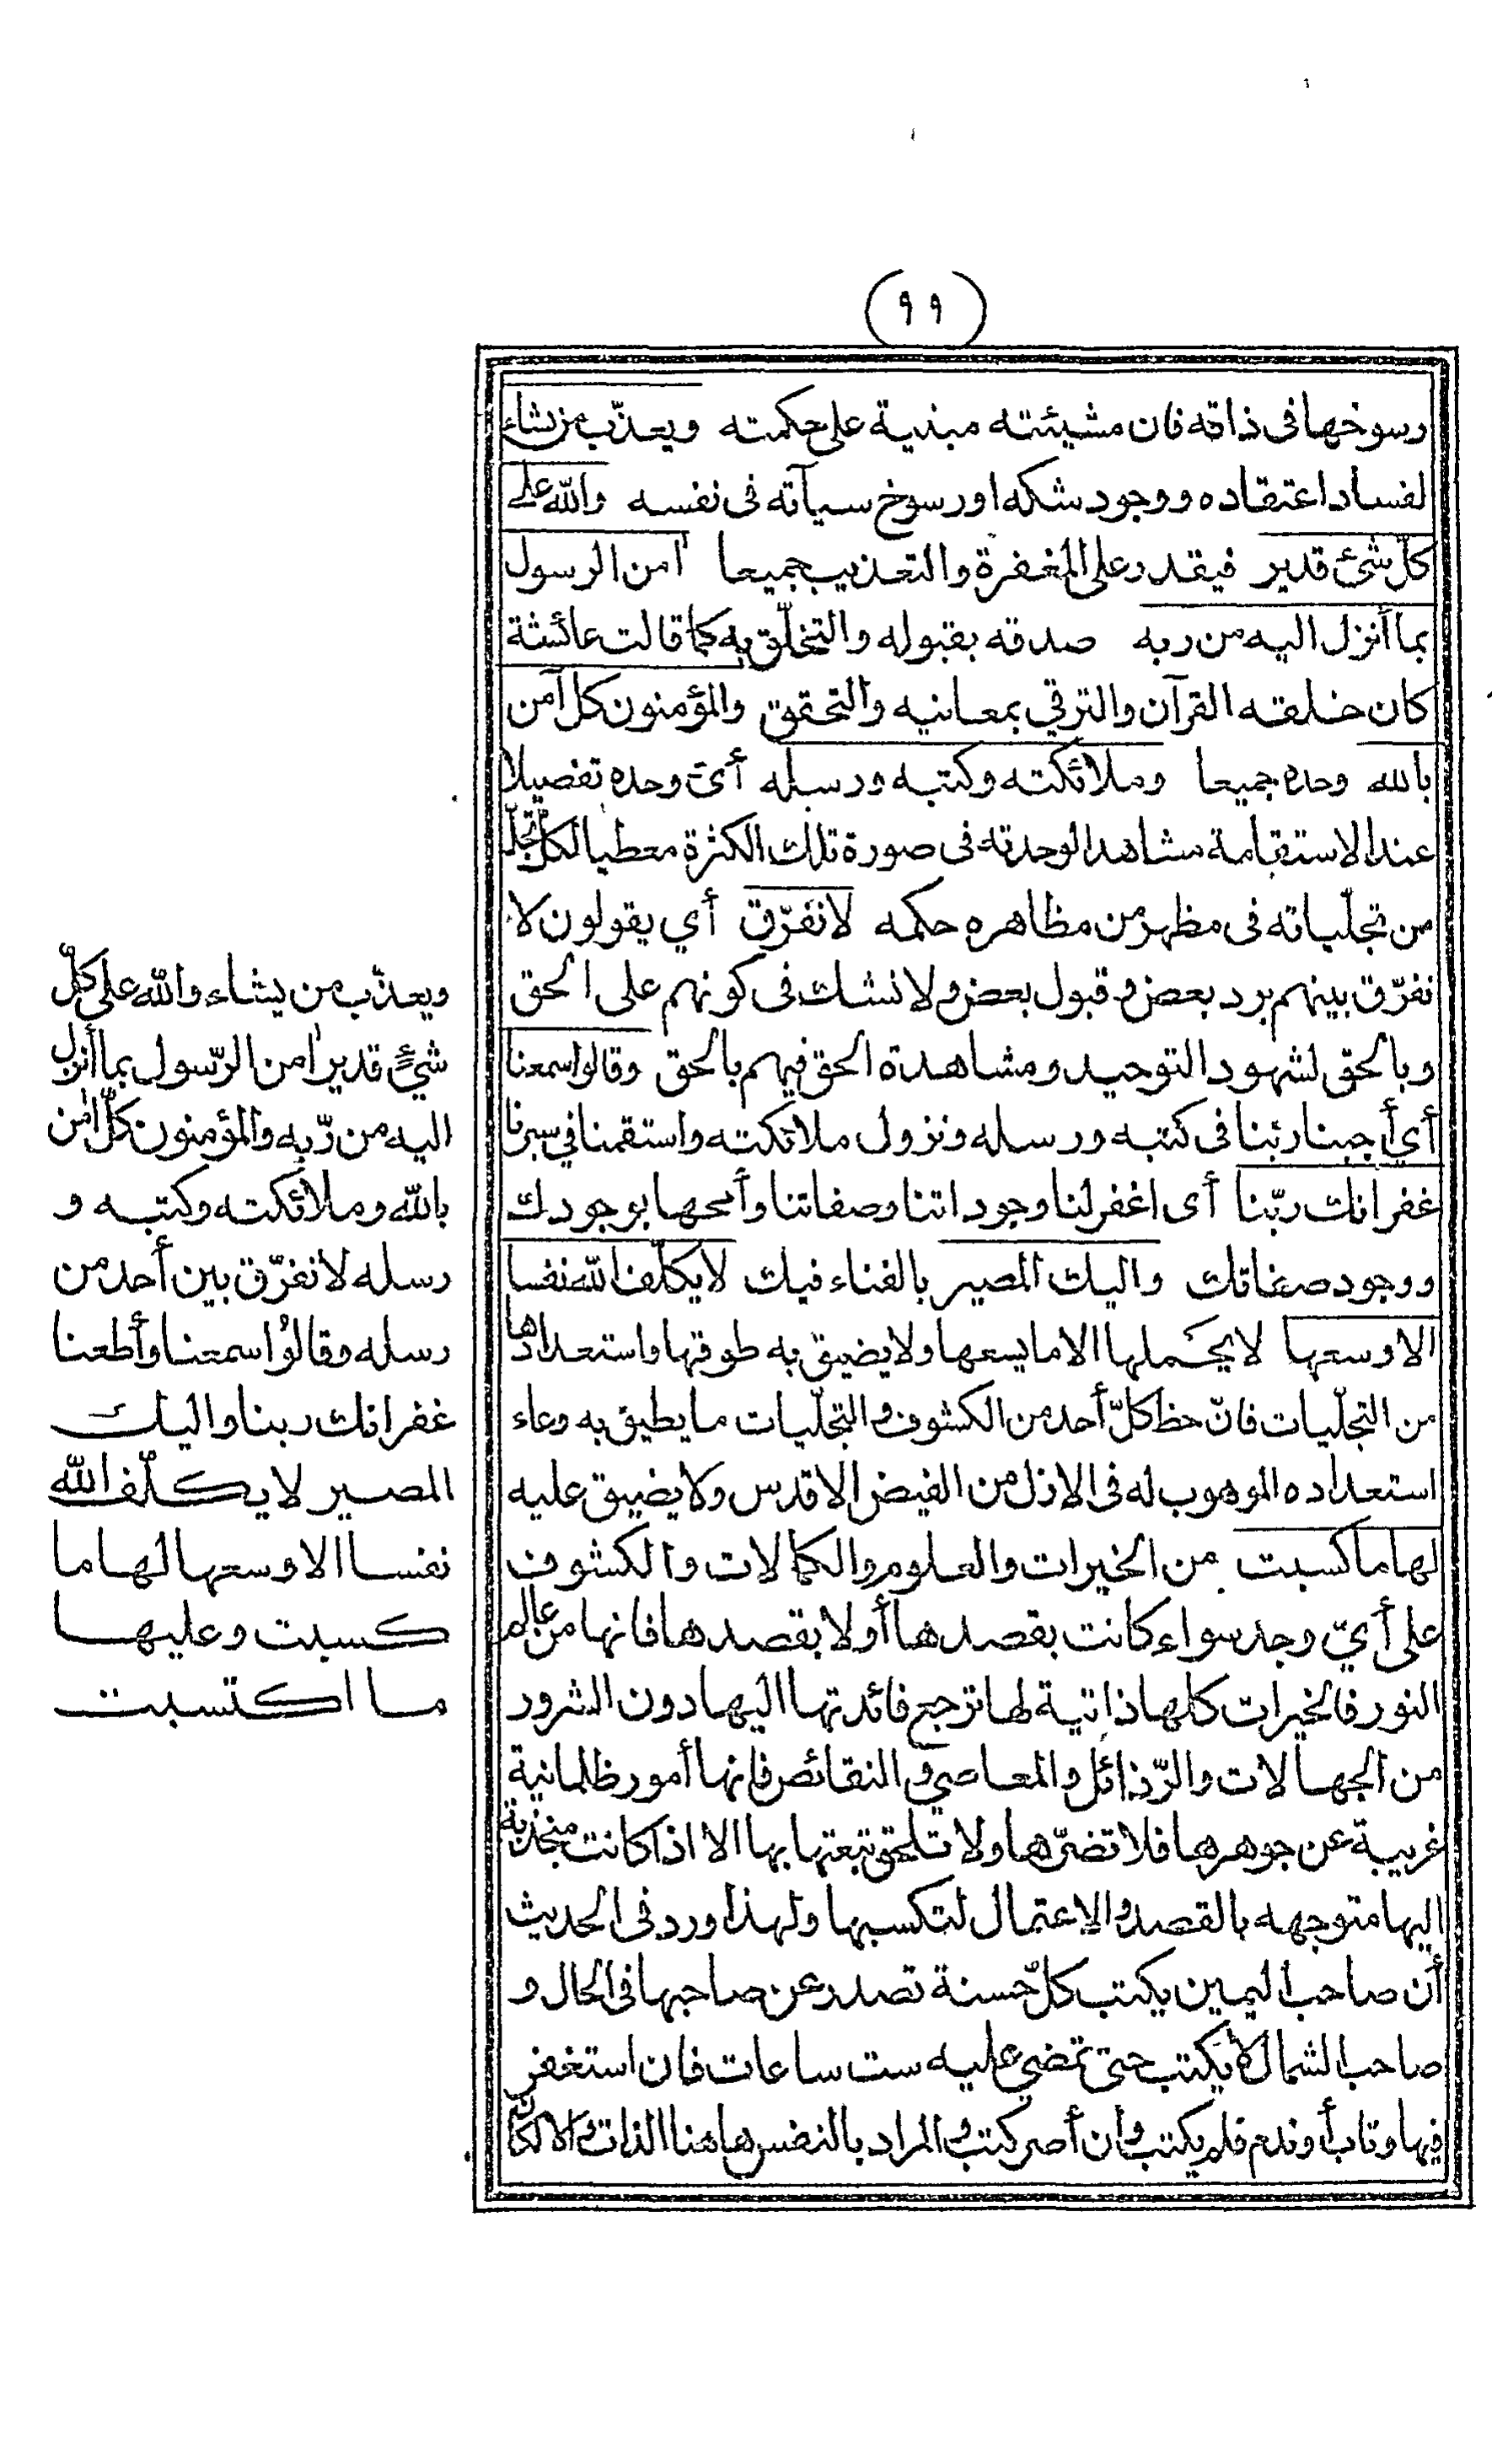 (٩٩)
رسوخها فى ذاته فان مشيئته مبنية على حكمته ويعذّب من يشاء
لفساد اعتقاده ووجود شكه او رسوخ سيآته فى نفسه والله على
كلّ شئ قدير فيقدر على المغفرة والتعذيب جميعا اٰمن الرسول
بما أنزل اليه من ربه صدقه بقبوله والتخلّق به كما قالت عائشة
كان خلقه القرآن والترقي بمعانيه والتحقق والمؤمنون كل آمن
بالله وحده جميعا وملائكته وكتبه ورسله أى وحده تفصيلا
عند الاستقامة مشاهدا لوحدته فى صورة تلك الكثرة معطيا لكل تجلّ
من تجلّياته فى مظهر من مظاهره حكمه لا نفرّق أي يقولون لا
نفرّق بينهم برد بعض وقبول بعض ولا نشك فى كونهم على الحق
وبالحق لشهود التوحيد ومشاهدة الحق فيهم بالحق وقالوا سمعنا
أي أجبنا ربّنا فى كتبه ورسله ونزول ملائكته واستقمنا في سيرنا
غفرانك ربّنا أى اغفر لنا وجوداتنا وصفاتنا وأمحها بوجودك
ووجود صفاتك واليك المصير بالفناء فيك لا يكلّف الله نفسا
الا وسعها لا يحمّلها الا ما يسعها ولا يضيق به طوقها واستعدادها
من التجلّيات فانّ حظ كلّ أحد من الكشوف والتجلّيات ما يطيق به وعاء
استعداده الموهوب له فى الازل من الفيض الاقدس ولا يضيق عليه
لها ما كسبت من الخيرات والعلوم والكمالات والكشوف
على أيّ وجد سواء كانت بقصدها أو لا بقصدها فانها من عالم
النور فالخيرات كلها ذاتية لها ترجع فائدتها اليها دون الشرور
من الجهالات والرّذائل والمعاصي والنقائص فانها أمور ظلمانية
غريبة عن جوهرها فلا تضرّها ولا تلحق تبعتها بها الا اذا كانت منجذبة
اليها متوجهه بالقصد والاعتمال لتكسبها ولهذا ورد فى الحديث
أن صاحب اليمين يكتب كلّ حسنة تصدر عن صاحبها فى الحال و
صاحب الشمال لا يكتب حتى تمضي عليه ست ساعات فان استغفر
فيها وتاب أو ندم فلم يكتب وان أصر كتب والمراد بالنفس هاهنا الذات والا لكان
ويعذّب من يشاء والله على كلّ
شيءٍ قدير اٰمن الرّسول بما أنزل
اليه من رّبه والمؤمنون كلّ اٰمن
بالله وملائكته وكتبه و
رسله لا نفرّق بين أحد من
رسله وقالوُا سمعنا وأطعنا
غفرانك ربنا واليك
المصير لا يكلّف الله
نفسا الا وسعها لها ما
كسبت وعليها
ما اكتسبت